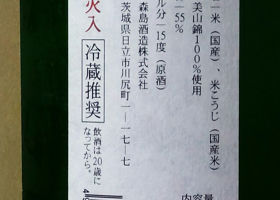 米(国産)、米こうじ(国産米)
美山錦100%使用
55%
ルコール分15度(原酒)
森島酒造株式会社
茨城県日立市川尻町一ー一七ー七
火入
冷蔵推奨
飲酒は20歳に
なってから。
内容量